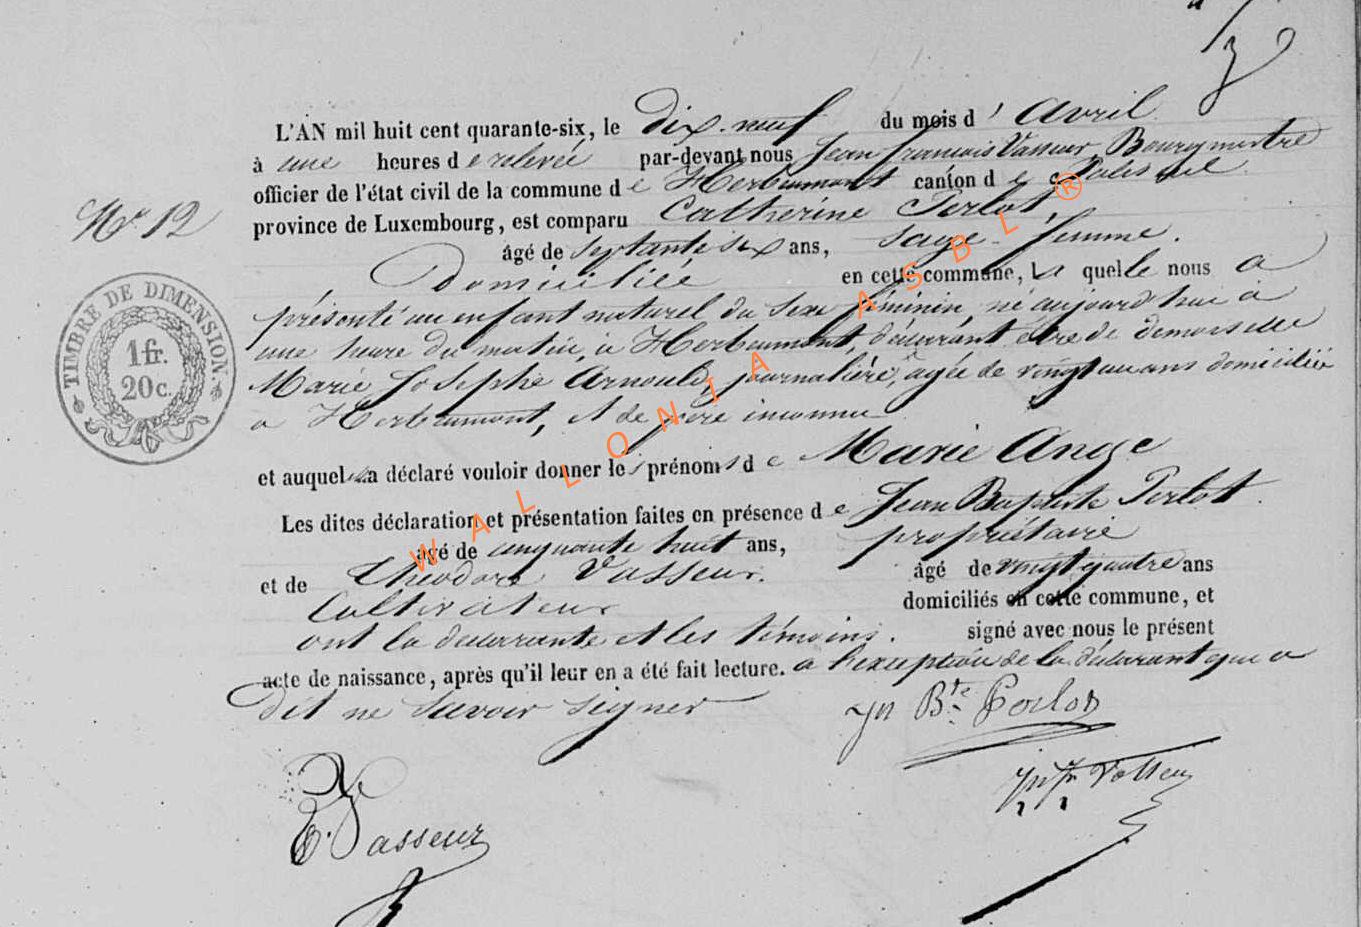 No 12
TIMBRE DE DIMENSION
1 fr.
20 c.
L'AN mil huit cent quarante-six, le Dix-neuf du mois d' Avril
à une heures d e relevée par-devant nous Jean francois Vasseur Bourgmestre
officier de l'état civil de la commune d e Herbeumont canton d e Paliseul
province de Luxembourg, est comparu Catherine Perlot,
âgé de septante six ans, sage-femme.
Domiciliée en cette commune, la quelle nous a
présenté un enfant naturel du sexe féminin, né aujourd'hui à
une heure du matin, à Herbeumont, déclarant être de demoiselle
Marie Josephe Arnould, journalière, agée de vingt un ans domiciliée
a Herbeumont, et de père inconnu
et auquel la déclaré vouloir donner les prénoms d e Marie Ange
Les dites déclaration et présentation faites en présence d e Jean Baptiste Perlot
agé de cinquante huit ans, propriétaire
et de Théodore Vasseur. âgé de vingt quatre ans
Cultivateur domiciliés en cette commune, et
ont la déclarante et les témoins. signé avec nous le présent
acte de naissance, après qu'il leur en a été fait lecture. a l'exception de la déclarant que a
dit ne savoir signer
Jn Bte Perlot
T. Vasseur
WALLONIA ASBL ®